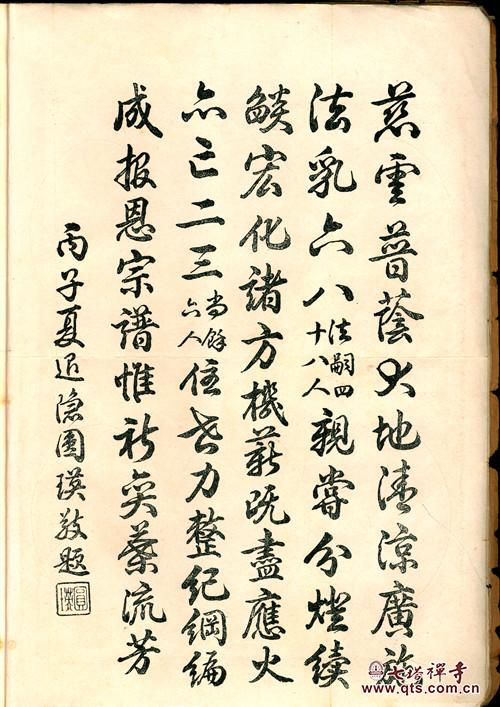 慈雲普蔭大地清涼廣施
法乳六八法嗣四十八人親嘗分燈續
燄宏化諸方機薪既盡應火
亦亡二三尚餘六人住世力整紀綱編
成报恩宗譜惟祈奕葉流芳
丙子夏退隱圓瑛敬題
圓瑛
七塔禪寺
www.qts.com.cn